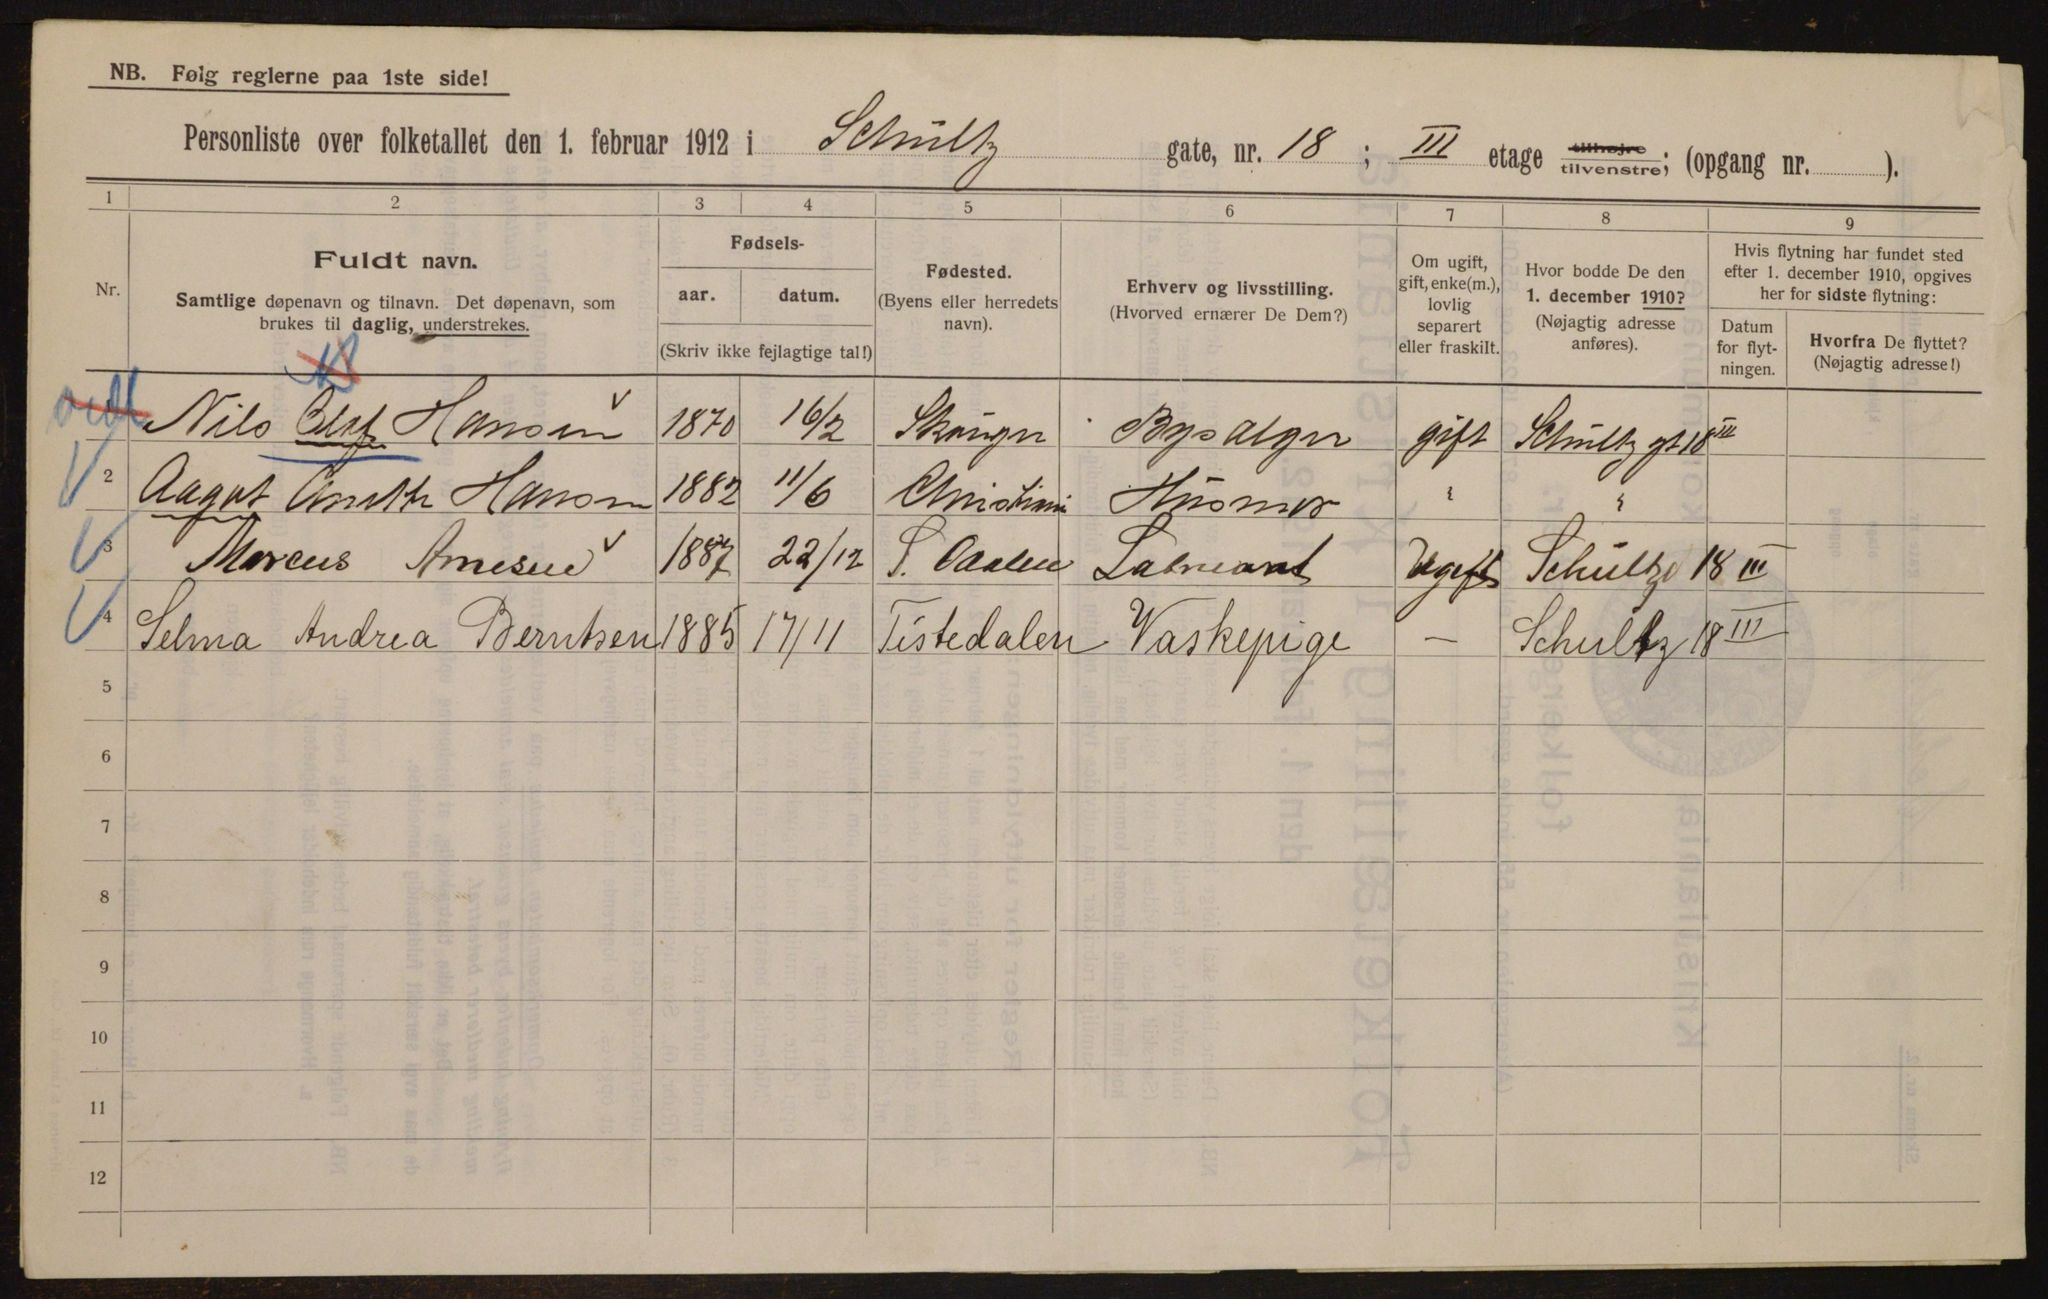 NB. Følg reglerne paa 1ste side!
Personliste over folketallet den 1. februar 1912 i Schultz gate, nr. 18; III etage tilhøjre tilvenstre; (opgang nr. ).
1 2 3 4 5 6 7 8 9
Nr.
Fuldt navn.
Samtlige døpenavn og tilnavn. Det døpenavn, som
brukes til daglig, understrekes.
Fødsels-
aar. datum.
(Skriv ikke fejlagtige tal!)
Fødested.
(Byens eller herredets
navn).
Erhverv og livsstilling.
(Hvorved ernærer De Dem?)
Om ugift,
gift, enke(m.),
lovlig
separert
eller fraskilt.
Hvor bodde De den
1. december 1910?
(Nøjagtig adresse
anføres).
Hvis flytning har fundet sted
efter 1. december 1910, opgives
her for sidste flytning:
Datum
for flyt-
ningen.
Hvorfra De flyttet?
(Nøjagtig adresse!)
Nils Olaf Hansen 1870 16/2 gift Schultz gt 18 III
2 Aagot Hansen 1882 11/6 Christiania Husmor " "
3 Marcus Arnesen 1887 22/12 Ugift Schultz 18 III
4 Selma Andrea Berntsen 1885 17/11 Tistedalen Vaskepige — Schultz 18 III
5
6
7
8
9
10
11
12